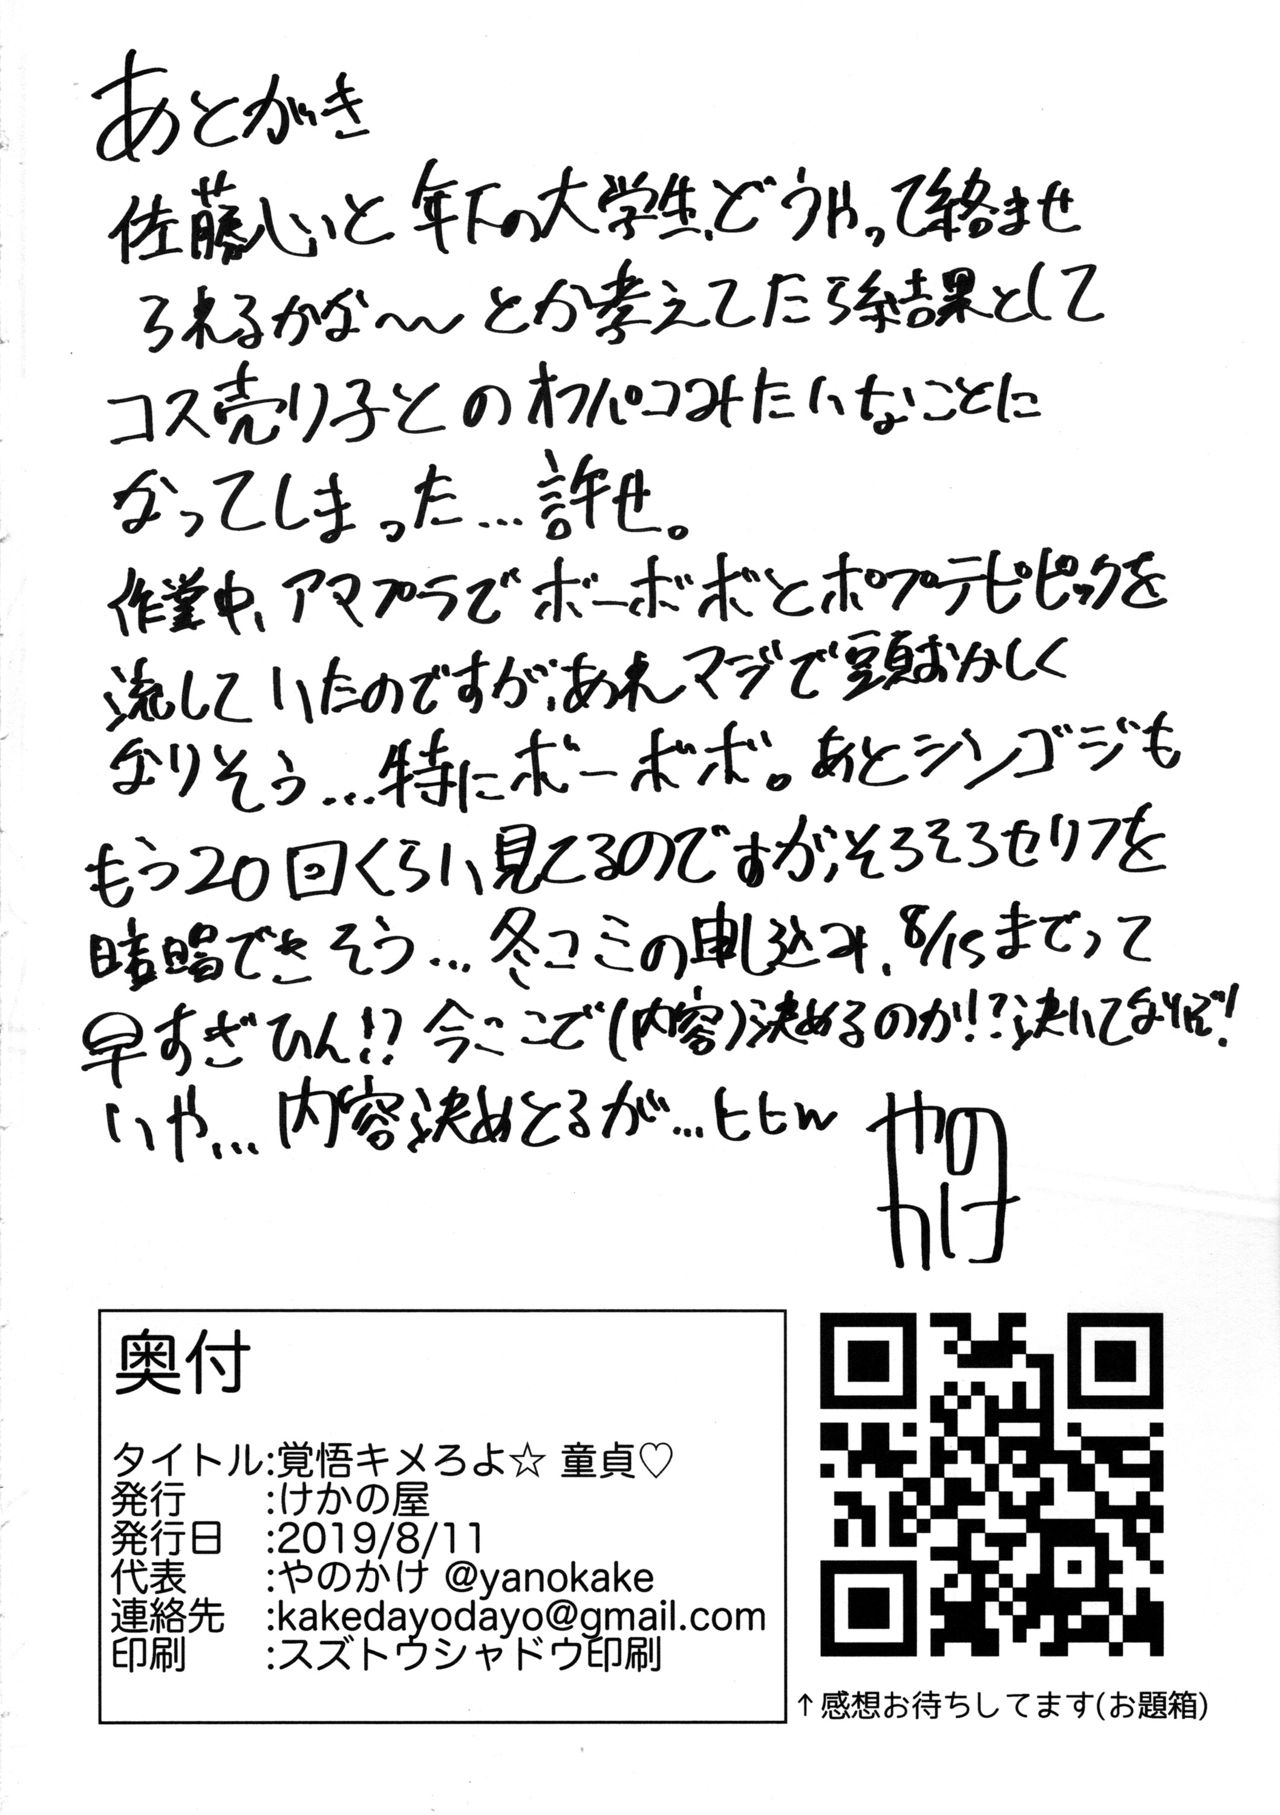 あとがき
佐藤心と年下の大学生、どうやって絡ませ
られるかな〜とか考えてたら結果として
コス売り子とのオフパコみたいなことに
なってしまった…許せ。
作業中、アマプラでボーボボとポプテピピックを
流していたのですが、あれマジで頭おかしく
なりそう…特にボーボボ。あとシンゴジも
もう20回くらい見てるのですが、そろそろセリフを
暗唱できそう…冬コミの申し込み、8/15までって
早すぎひん!? 今ここで(内容)決めるのか!?決めてないぞ!
いや…内容決めとるが…ヒヒw
やの
かけ
奥付
タイトル:覚悟キメろよ☆ 童貞♡
発行 :けかの屋
発行日 :2019/8/11
代表 :やのかけ @yanokake
連絡先 :kakedayodayo@gmail.com
印刷 :スズトウシャドウ印刷
↑感想お待ちしてます(お題箱)